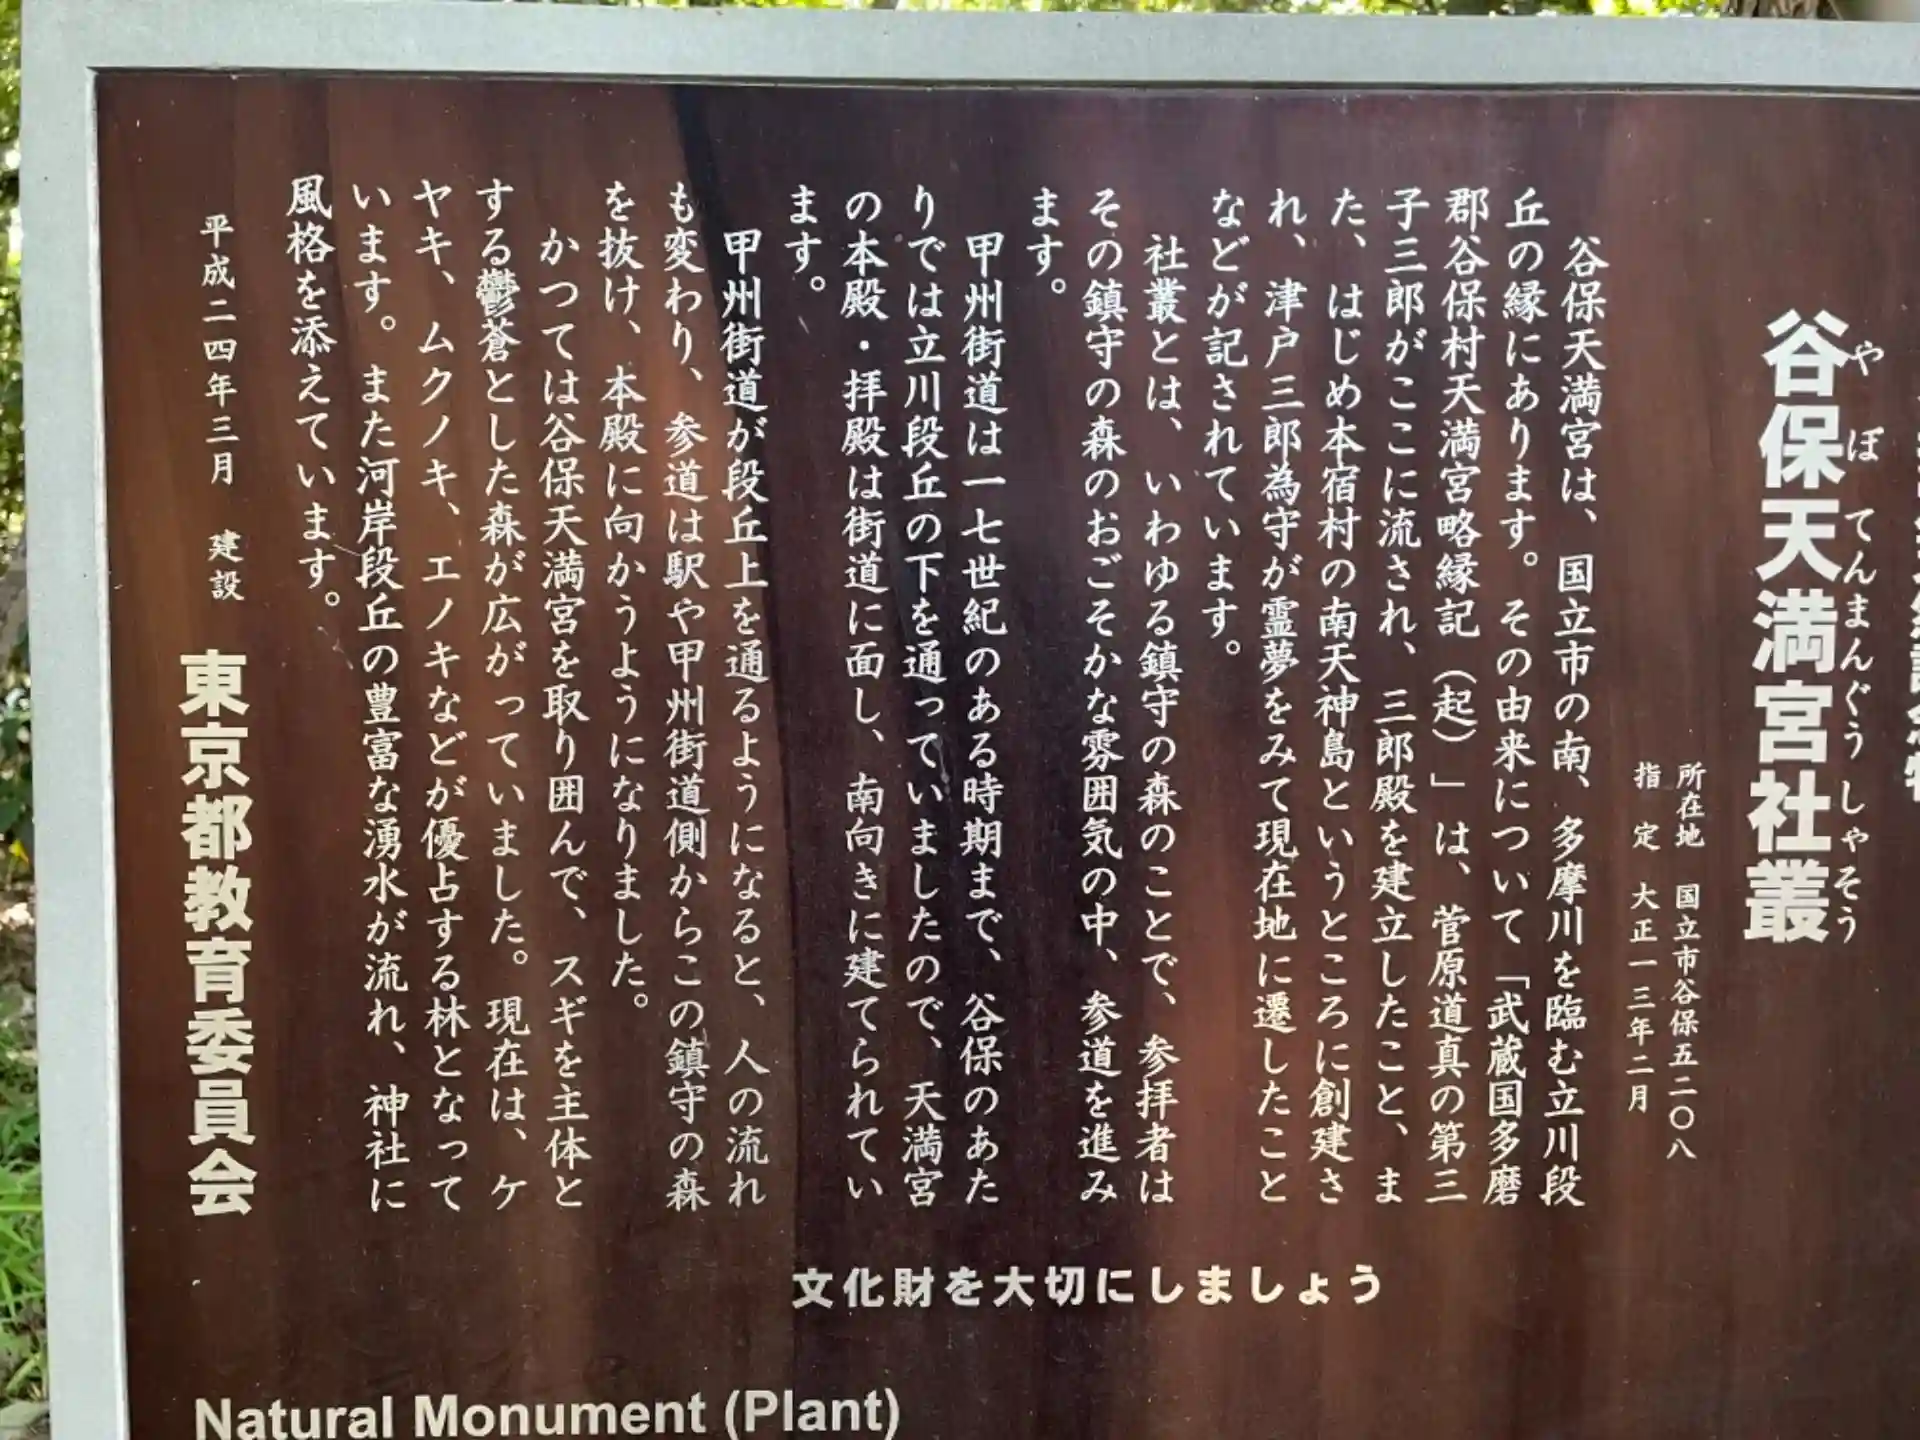 谷保天満宮社叢
やぼてんまんぐうしゃそう
所在地 国立市谷保五二〇八
指定 大正一三年二月
谷保天満宮は、国立市の南、多摩川を臨む立川段
丘の縁にあります。その由来について「武蔵国多磨
郡谷保村天満宮略縁記（起）」は、菅原道真の第三
子三郎がここに流され、三郎殿を建立したこと、ま
た、はじめ本宿村の南天神島というところに創建さ
れ、津戸三郎為守が霊夢をみて現在地に遷したこと
などが記されています。
社叢とは、いわゆる鎮守の森のことで、参拝者は
その鎮守の森のおごそかな雰囲気の中、参道を進み
ます。
甲州街道は一七世紀のある時期まで、谷保のあた
りでは立川段丘の下を通っていましたので、天満宮
の本殿・拝殿は街道に面し、南向きに建てられてい
ます。
甲州街道が段丘上を通るようになると、人の流れ
も変わり、参道は駅や甲州街道側からこの鎮守の森
を抜け、本殿に向かうようになりました。
かつては谷保天満宮を取り囲んで、スギを主体と
する鬱蒼とした森が広がっていました。現在は、ケ
ヤキ、ムクノキ、エノキなどが優占する林となって
います。また河岸段丘の豊富な湧水が流れ、神社に
風格を添えています。
平成二四年三月 建設
東京都教育委員会
文化財を大切にしましょう
Natural Monument (Plant)